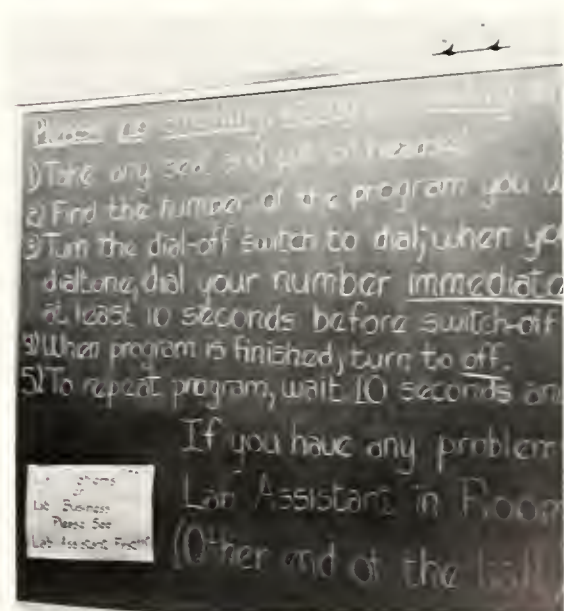 1) Take any seat and put on
2) Find the number of the program you w
3) Turn the dial-off switch to dial; when yo
dialtone, dial your number immediate
at least 10 seconds before switch-off
4) When program is finished, turn to off.
5) To repeat program, wait 10 seconds an
If you have any problem
Lab Assistant in Room
(Other end of the hall
Lab Business
Please See
Lab Assistant First!